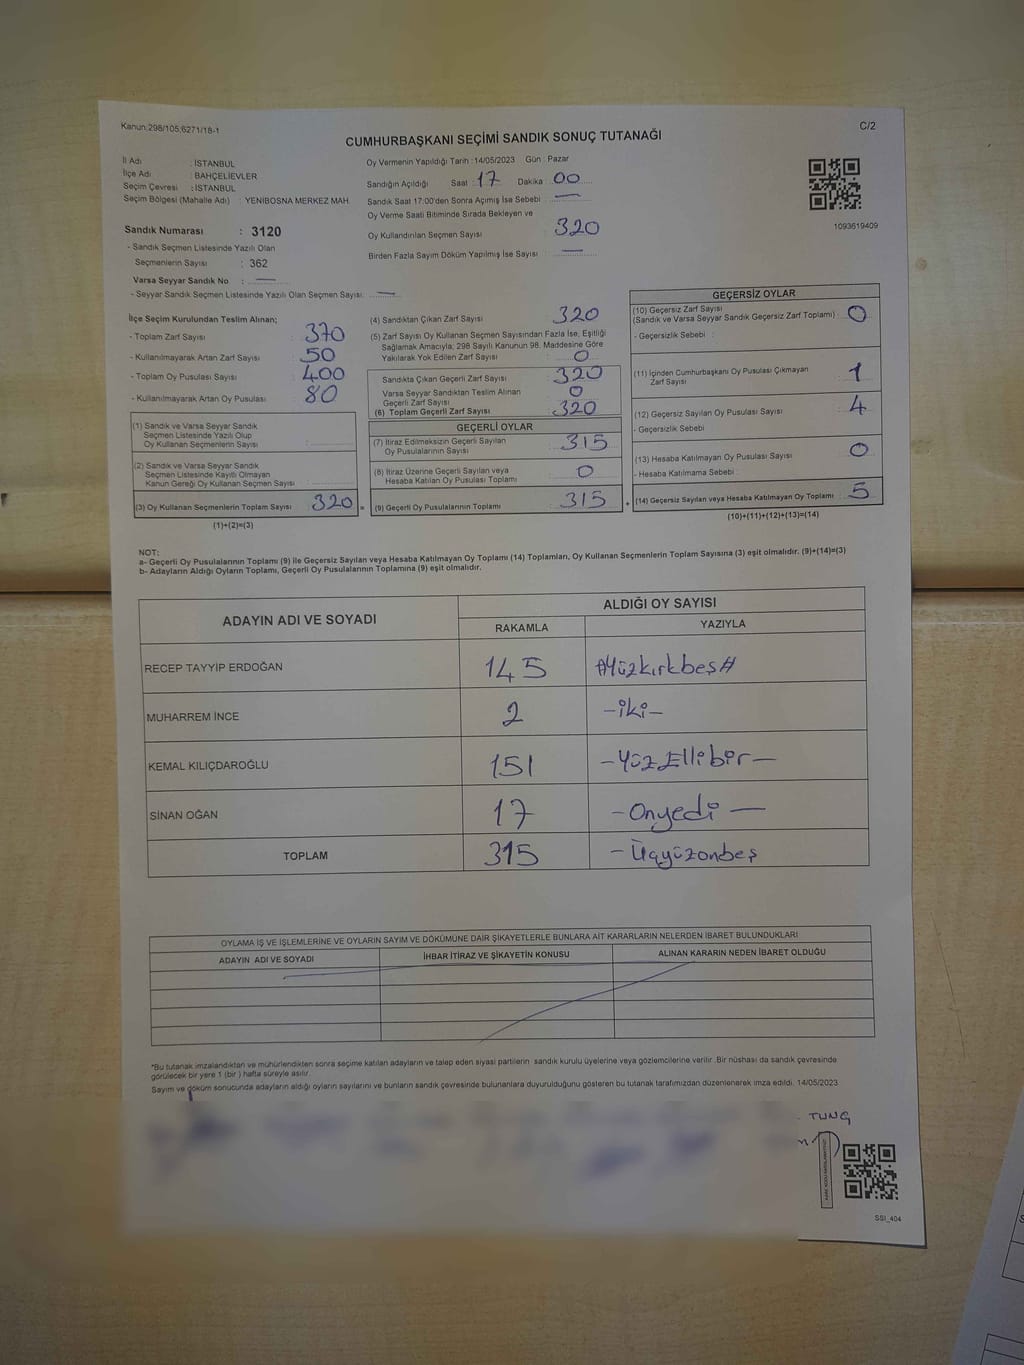 Kanun:298/105;6271/18-1
C/2
CUMHURBAŞKANI SEÇİMİ SANDIK SONUÇ TUTANAĞI
İl Adı : İSTANBUL
İlçe Adı : BAHÇELİEVLER
Seçim Çevresi : İSTANBUL
Seçim Bölgesi (Mahalle Adı) : YENİBOSNA MERKEZ MAH.
Sandık Numarası : 3120
- Sandık Seçmen Listesinde Yazılı Olan
Seçmenlerin Sayısı : 362
Varsa Seyyar Sandık No : —
- Seyyar Sandık Seçmen Listesinde Yazılı Olan Seçmen Sayısı: —
Oy Vermenin Yapıldığı Tarih :14/05/2023 Gün : Pazar
Sandığın Açıldığı Saat : 17 Dakika : 00
Sandık Saat 17:00'den Sonra Açımış İse Sebebi : —
Oy Verme Saati Bitiminde Sırada Bekleyen ve
Oy Kullandırılan Seçmen Sayısı : 320
Birden Fazla Sayım Döküm Yapılmış İse Sayısı : —
1093619409
İlçe Seçim Kurulundan Teslim Alınan;
- Toplam Zarf Sayısı : 370
- Kullanılmayarak Artan Zarf Sayısı : 50
- Toplam Oy Pusulası Sayısı : 400
- Kullanılmayarak Artan Oy Pusulası : 80
(1) Sandık ve Varsa Seyyar Sandık
Seçmen Listesinde Yazılı Olup
Oy Kullanan Seçmenlerin Sayısı :
(2) Sandık ve Varsa Seyyar Sandık
Seçmen Listesinde Kayıtlı Olmayan
Kanun Gereği Oy Kullanan Seçmen Sayısı :
(3) Oy Kullanan Seçmenlerin Toplam Sayısı : 320 =
(1)+(2)=(3)
(4) Sandıktan Çıkan Zarf Sayısı : 320
(5) Zarf Sayısı Oy Kullanan Seçmen Sayısından Fazla İse, Eşitliği
Sağlamak Amacıyla; 298 Sayılı Kanunun 98. Maddesine Göre
Yakılarak Yok Edilen Zarf Sayısı : 0
Sandıkta Çıkan Geçerli Zarf Sayısı : 320
Varsa Seyyar Sandıktan Teslim Alınan
Geçerli Zarf Sayısı : 0
(6) Toplam Geçerli Zarf Sayısı : 320
GEÇERLİ OYLAR
(7) İtiraz Edilmeksizin Geçerli Sayılan
Oy Pusulalarının Sayısı : 315
(8) İtiraz Üzerine Geçerli Sayılan veya
Hesaba Katılan Oy Pusulası Toplamı : 0
(9) Geçerli Oy Pusulalarının Toplamı : 315 +
GEÇERSİZ OYLAR
(10) Geçersiz Zarf Sayısı
(Sandık ve Varsa Seyyar Sandık Geçersiz Zarf Toplamı) : 0
- Geçersizlik Sebebi :
(11) İçinden Cumhurbaşkanı Oy Pusulası Çıkmayan
Zarf Sayısı : 1
(12) Geçersiz Sayılan Oy Pusulası Sayısı : 4
- Geçersizlik Sebebi
(13) Hesaba Katılmayan Oy Pusulası Sayısı : 0
- Hesaba Katılmama Sebebi :
(14) Geçersiz Sayılan veya Hesaba Katılmayan Oy Toplamı : 5
(10)+(11)+(12)+(13)=(14)
NOT:
a- Geçerli Oy Pusulalarının Toplamı (9) ile Geçersiz Sayılan veya Hesaba Katılmayan Oy Toplamı (14) Toplamları, Oy Kullanan Seçmenlerin Toplam Sayısına (3) eşit olmalıdır. (9)+(14)=(3)
b- Adayların Aldığı Oyların Toplamı, Geçerli Oy Pusulalarının Toplamına (9) eşit olmalıdır.
ADAYIN ADI VE SOYADI ALDIĞI OY SAYISI
RAKAMLA YAZIYLA
RECEP TAYYİP ERDOĞAN 145 #Yüzkırkbeş#
MUHARREM İNCE 2 -iki-
KEMAL KILIÇDAROĞLU 151 -YüzEllibir-
SİNAN OĞAN 17 -Onyedi-
TOPLAM 315 -Üçyüzonbeş
OYLAMA İŞ VE İŞLEMLERİNE VE OYLARIN SAYIM VE DÖKÜMÜNE DAİR ŞİKAYETLERLE BUNLARA AİT KARARLARIN NELERDEN İBARET BULUNDUKLARI
ADAYIN ADI VE SOYADI İHBAR İTİRAZ VE ŞİKAYETİN KONUSU ALINAN KARARIN NEDEN İBARET OLDUĞU
*Bu tutanak imzalandıktan ve mühürlendikten sonra seçime katılan adayların ve talep eden siyasi partilerin sandık kurulu üyelerine veya gözlemcilerine verilir. Bir nüshası da sandık çevresinde
görülecek bir yere 1 (bir) hafta süreyle asılır.
Sayım ve döküm sonucunda adayların aldığı oyların sayılarını ve bunların sandık çevresinde bulunanlara duyurulduğunu gösteren bu tutanak tarafımızdan düzenlenerek imza edildi. 14/05/2023
TUNG
SSI_404